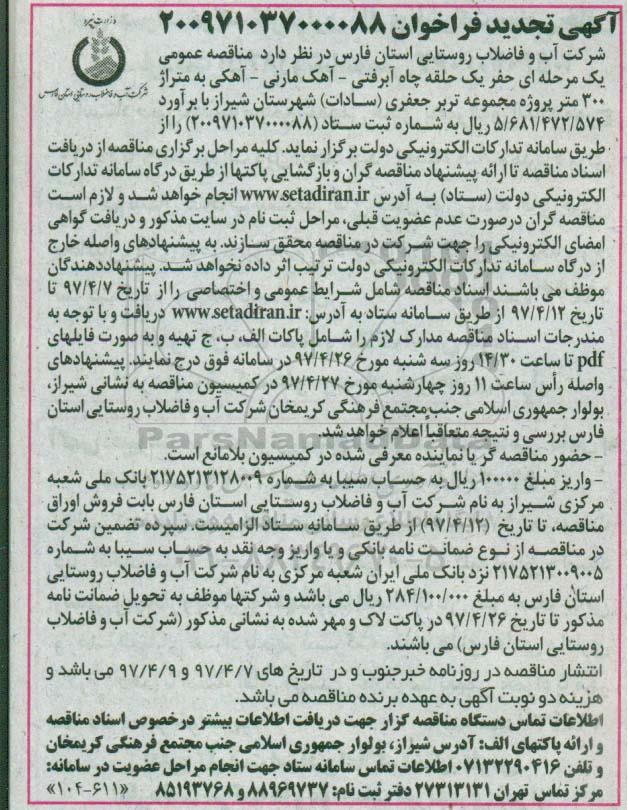 آگهی تجدید فراخوان ۲۰۰۹۷۱۰۳۷۰۰۰۰۸۸
وزارت نیرو
شرکت آب و فاضلاب روستایی استان فارس
شرکت آب و فاضلاب روستایی استان فارس در نظر دارد مناقصه عمومی
یک مرحله ای حفر یک حلقه چاه آبرفتی - آهک مارنی - آهکی به متراژ
۳۰۰ متر پروژه مجموعه تربر جعفری (سادات) شهرستان شیراز با برآورد
۵/۶۸۱/۴۷۲/۵۷۴ ریال به شماره ثبت ستاد (۲۰۰۹۷۱۰۳۷۰۰۰۰۸۸) را از
طریق سامانه تدارکات الکترونیکی دولت برگزار نماید. کلیه مراحل برگزاری مناقصه از دریافت
اسناد مناقصه تا ارائه پیشنهاد مناقصه گران و بازگشایی پاکتها از طریق درگاه سامانه تدارکات
الکترونیکی دولت (ستاد) به آدرس www.setadiran.ir انجام خواهد شد و لازم است
مناقصه گران درصورت عدم عضویت قبلی، مراحل ثبت نام در سایت مذکور و دریافت گواهی
امضای الکترونیکی را جهت شرکت در مناقصه محقق سازند. به پیشنهادهای واصله خارج
از درگاه سامانه تدارکات الکترونیکی دولت ترتیب اثر داده نخواهد شد. پیشنهاددهندگان
موظف می باشند اسناد مناقصه شامل شرایط عمومی و اختصاصی را از تاریخ ۹۷/۴/۷ تا
تاریخ ۹۷/۴/۱۲ از طریق سامانه ستاد به آدرس: www.setadiran.ir دریافت و با توجه به
مندرجات اسناد مناقصه مدارک لازم را شامل پاکات الف، ب، ج تهیه و به صورت فایلهای
pdf تا ساعت ۱۴/۳۰ روز سه شنبه مورخ ۹۷/۴/۲۶ در سامانه فوق درج نمایند. پیشنهادهای
واصله رأس ساعت ۱۱ روز چهارشنبه مورخ ۹۷/۴/۲۷ در کمیسیون مناقصه به نشانی شیراز،
بولوار جمهوری اسلامی جنب مجتمع فرهنگی کریمخان شرکت آب و فاضلاب روستایی استان
فارس بررسی و نتیجه متعاقباً اعلام خواهد شد.
- حضور مناقصه گر یا نماینده معرفی شده در کمیسیون بلامانع است.
- واریز مبلغ ۱۰۰۰۰۰ ریال به حساب سیبا به شماره ۲۱۷۵۲۱۳۱۲۸۰۰۹ بانک ملی شعبه
مرکزی شیراز به نام شرکت آب و فاضلاب روستایی استان فارس بابت فروش اوراق
مناقصه، تا تاریخ (۹۷/۴/۱۲) از طریق سامانه ستاد الزامیست. سپرده تضمین شرکت
در مناقصه از نوع ضمانت نامه بانکی و یا واریز وجه نقد به حساب سیبا به شماره
۲۱۷۵۲۱۳۰۰۹۰۰۵ نزد بانک ملی ایران شعبه مرکزی به نام شرکت آب و فاضلاب روستایی
استان فارس به مبلغ ۲۸۴/۱۰۰/۰۰۰ ریال می باشد و شرکتها موظف به تحویل ضمانت نامه
مذکور تا تاریخ ۹۷/۴/۲۶ در پاکت لاک و مهر شده به نشانی مذکور (شرکت آب و فاضلاب
روستایی استان فارس) می باشند.
انتشار مناقصه در روزنامه خبرجنوب و در تاریخ های ۹۷/۴/۷ و ۹۷/۴/۹ می باشد و
هزینه دو نوبت آگهی به عهده برنده مناقصه می باشد.
اطلاعات تماس دستگاه مناقصه گزار جهت دریافت اطلاعات بیشتر درخصوص اسناد مناقصه
و ارائه پاکتهای الف: آدرس شیراز، بولوار جمهوری اسلامی جنب مجتمع فرهنگی کریمخان
و تلفن ۰۷۱۳۲۲۹۰۴۱۶ اطلاعات تماس سامانه ستاد جهت انجام مراحل عضویت در سامانه:
مرکز تماس تهران ۲۷۳۱۳۱۳۱ دفتر ثبت نام: ۸۸۹۶۹۷۳۷ و ۸۵۱۹۳۷۶۸ «۱۰۴-۶۱۱»
ParsNamadData